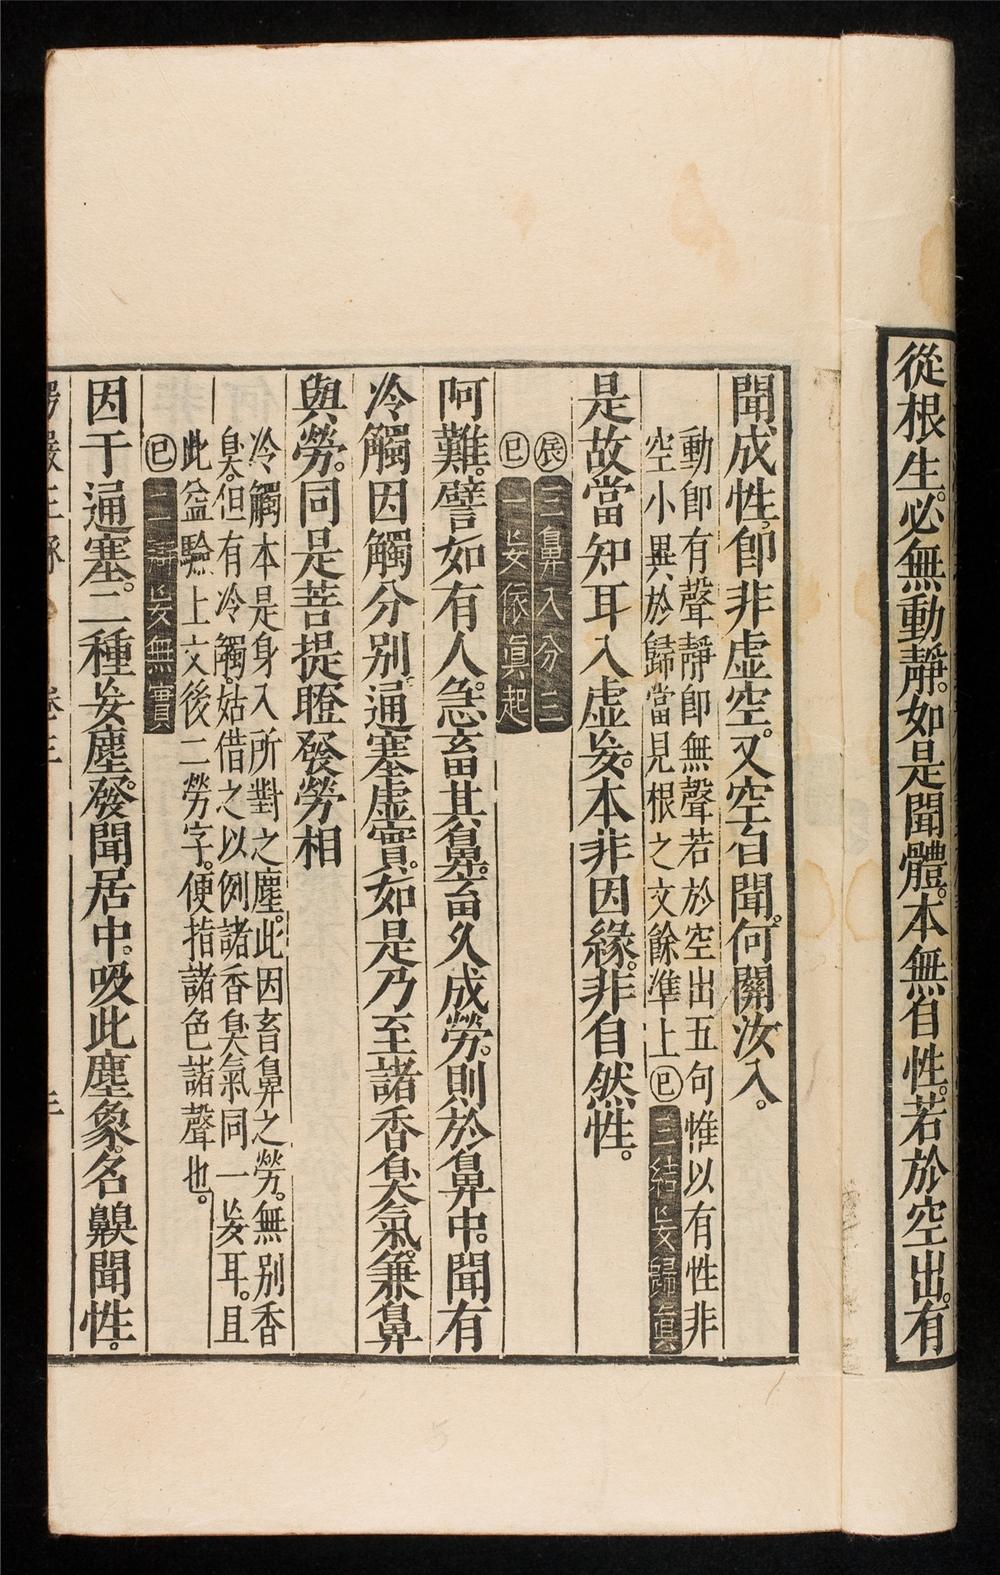 從根生。必無動靜。如是聞體。本無自性。若於空出。有
聞成性。即非虛空。又空自聞。何關汝入。
動即有聲靜即無聲若於空出五句惟以有性非
空小異於歸當見根之文餘準上㊀巳三結妄歸真
是故當知耳入虛妄。本非因緣。非自然性。
辰三鼻入分三
巳一妄依眞起
阿難。譬如有人。急畜其鼻。畜久成勞。則於鼻中。聞有
冷觸。因觸分別。通塞虛實。如是乃至諸香臭氣。兼鼻
與勞。同是菩提瞪發勞相
冷觸本是身入所對之塵。此因畜鼻之勞。無別香
臭。但有冷觸。姑借之以例諸香臭氣同一妄耳。且
此益驗上文後二勞字。便指諸色諸聲也。
巳二辯妄無實
因于通塞。二種妄塵。發聞居中。吸此塵象。名齅聞性。